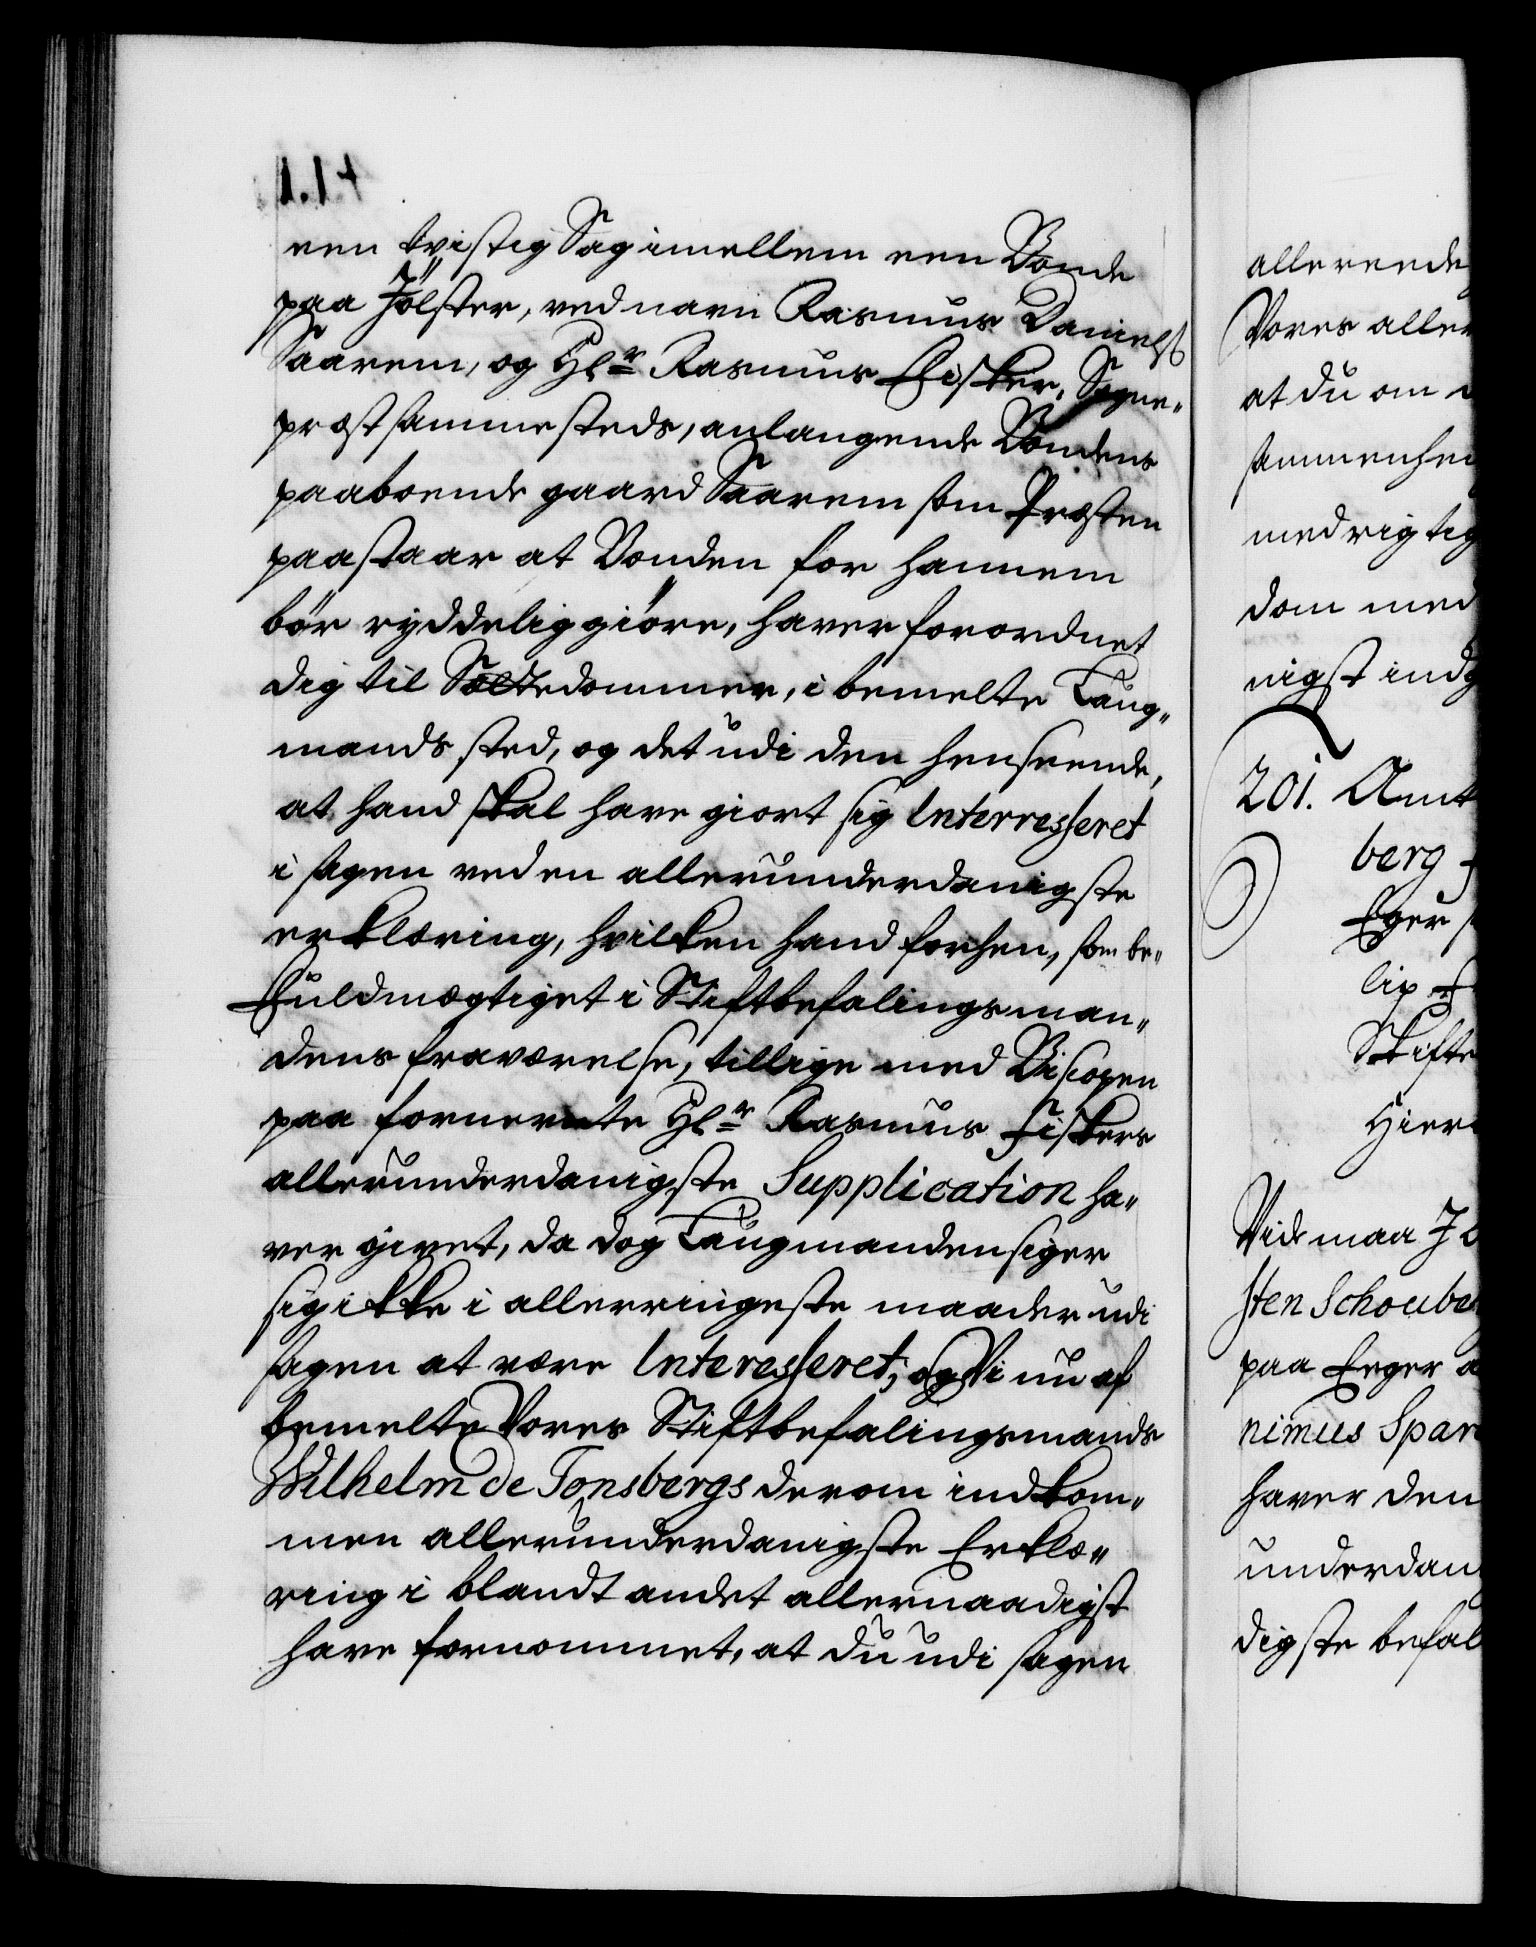 een tvistig Sag imellem een Bonde
paa Jölster, ved navn Rasmus Daniels
Saarem, og Hr. Rasmus Fisker, Sogne-
præst sammesteds, anlangende Bondens
paaboende gaard Saarem som Præsten
paastaar at Bonden for hannem
bör ryddeliggiöre, haver forordnet
dig til Sættedommer, i bemelte Laug-
mands sted, og det udi den henseende,
at hand skal have giort sig Interresseret
i sagen ved en allerunderdanigste
erklæring, hvilken hand forhen, som be-
fuldmægtiget i Stiftbefalingsman-
dens fraværelse, tillige med Biscopen
paa fornevnte Hr. Rasmus Fiskers
allerunderdanigste Supplication ha-
ver givet, da dog Laugmanden siger
sig ikke i allerringeste maader udi
sagen at være Interesseret; og Vi nu af
bemelte Vores Stiftbefalingsmands
Wilhelm de Tonsbergs derom indkom-
men allerunderdanigste Erklæ-
ring i blandt andet allernaadigst
have fornommet, at du udi sagen
allereede
Vores aller
at du om
sammenhen
med rigtig
dom med
nigst indg
201. Amt
berg
Eger
lip
Stifte
Hier
Vid maa
sten Schoube
paa Eeger a
nimus Spar
haver den
underdan
digste befal